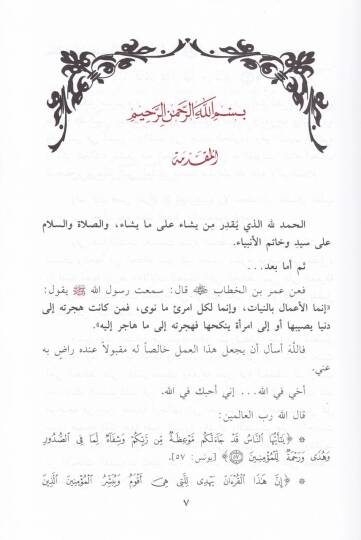 بسم الله الرحمن الرحيم
المقدمة
الحمد لله الذي يُقدِر مِن يشاء على ما يشاء، والصلاة والسلام
على سيدِ وخاتم الأنبياء.
ثم أما بعد...
فعن عمر بن الخطاب ﵁ قال: سمعت رسول الله ﷺ يقول:
«إنما الأعمال بالنيات، وإنما لكل امرئ ما نوى، فمن كانت هجرته إلى
دنيا يصيبها أو إلى امرأة ينكحها فهجرته إلى ما هاجر إليه».
فاللَّه أسأل أن يجعل هذا العمل خالصاً له مقبولاً عنده راضٍ به
عني.
أخي في الله... إني أحبك في الله.
قال الله رب العالمين:
* ﴿يَٰٓأَيُّهَا ٱلنَّاسُ قَدْ جَآءَتْكُم مَّوْعِظَةٌ مِّن رَّبِّكُمْ وَشِفَآءٌ لِّمَا فِى ٱلصُّدُورِ
وَهُدًى وَرَحْمَةٌ لِّلْمُؤْمِنِينَ ٥٧﴾ [يونس: ٥٧].
* ﴿إِنَّ هَٰذَا ٱلْقُرْءَانَ يَهْدِى لِلَّتِى هِىَ أَقْوَمُ وَيُبَشِّرُ ٱلْمُؤْمِنِينَ ٱلَّذِينَ
٧